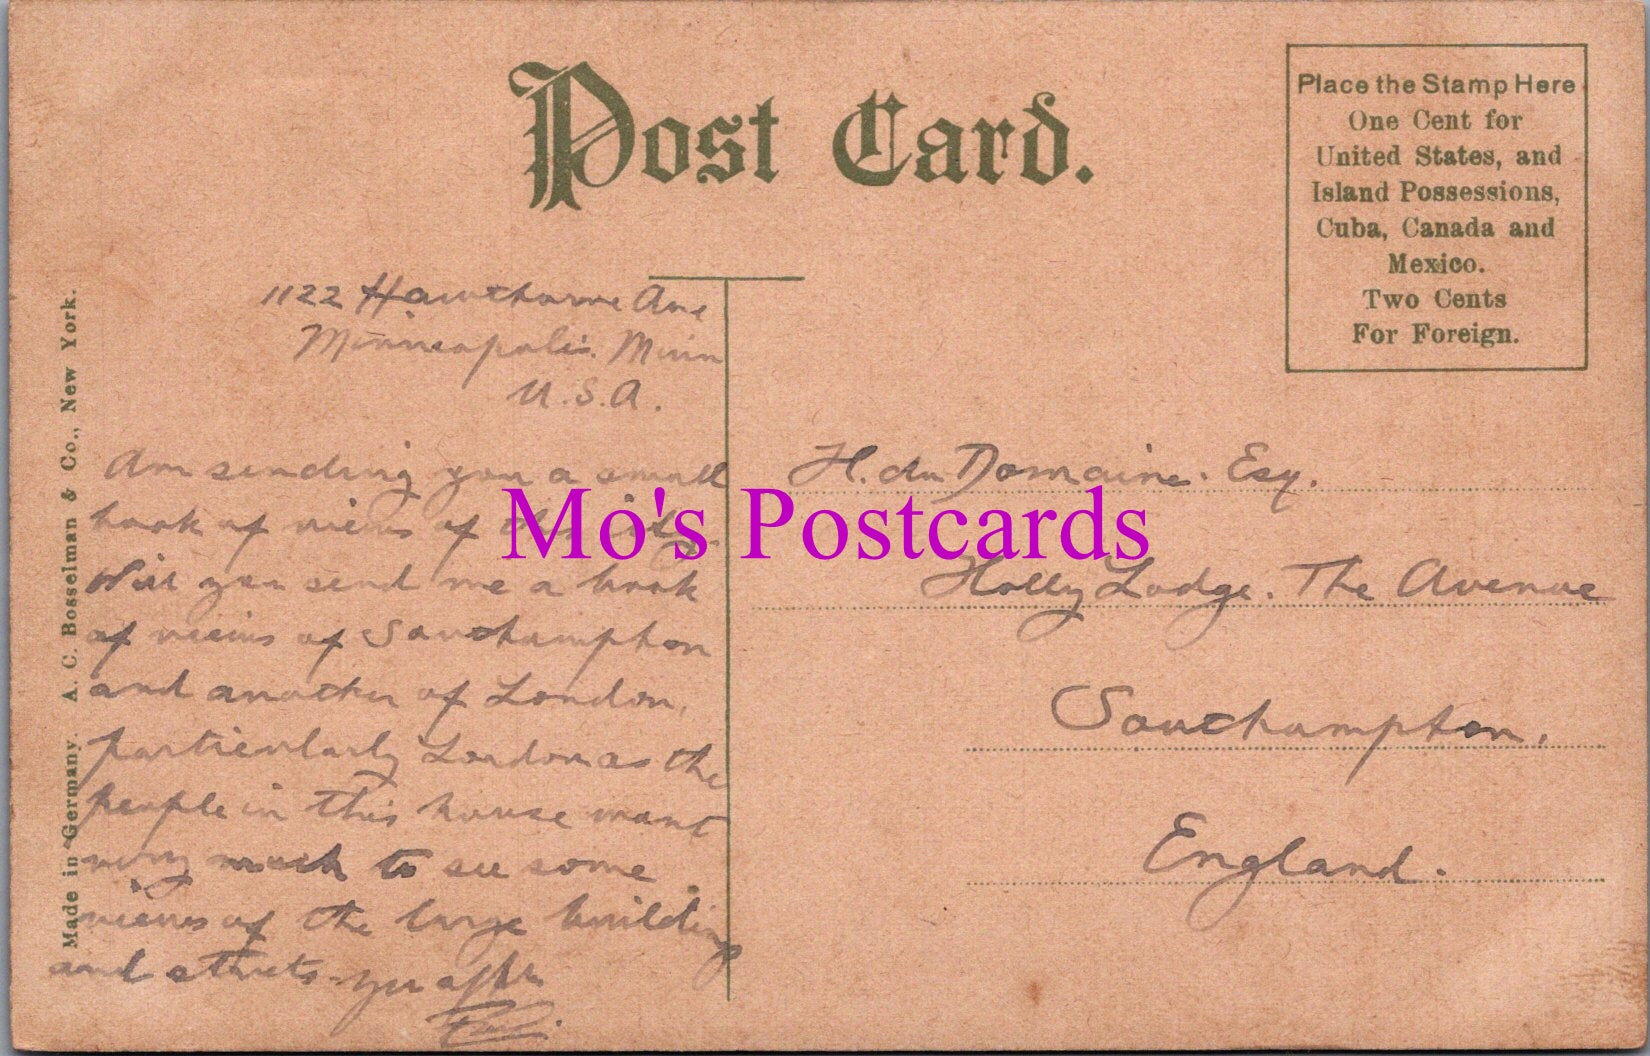 Post Card.
Place the Stamp Here
One Cent for
United States, and
Island Possessions,
Cuba, Canada and
Mexico.
Two Cents
For Foreign.
Made in Germany. A. C. Bosselman & Co., New York.
1122 Hawthorne Ave
Minneapolis. Minn
U.S.A.
Am sending you a small
book of views of this city.
Will you send me a book
of views of Southampton
and another of London,
particularly London as the
people in this house want
very much to see some
views of the large building
and streets - yr aff
H. du Domaine. Esq.
Holly Lodge. The Avenue
Southampton.
England.
Mo's Postcards